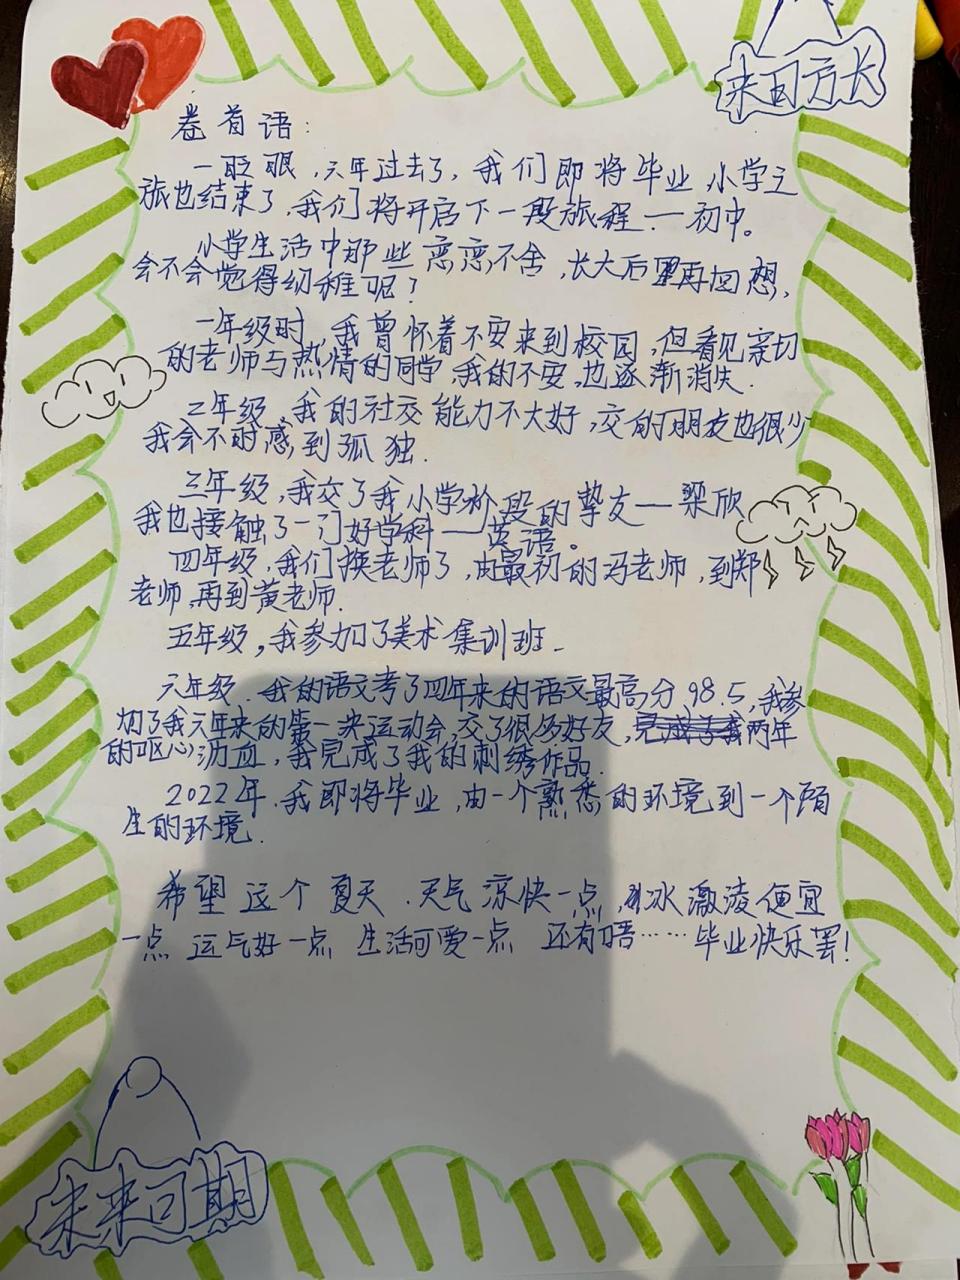 来日方长
卷首语:
一眨眼,六年过去了,我们即将毕业,小学之
旅也结束了,我们将开启下一段旅程——初中。
小学生活中那些恋恋不舍,长大后再回想,
会不会觉得幼稚呢?
一年级时,我曾怀着不安来到校园,但看见亲切
的老师与热情的同学,我的不安,也逐渐消失.
二年级,我的社交能力不大好,交的朋友也很少
我会不时感到孤独.
三年级,我交了我小学阶段的挚友——梁欣
我也接触了一门好学科——英语。
四年级,我们换老师了,由最初的冯老师,到郑
老师,再到黄老师.
五年级,我参加了美术集训班.
六年级,我的语文考了四年来的语文最高分98.5,我参
加了我六年来的第一次运动会,交了很多好友,完成了我两年
的呕心沥血,我完成了我的刺绣作品.
2022年,我即将毕业,由一个熟悉的环境到一个陌
生的环境.
希望这个夏天,天气凉快一点,冰激凌便宜
一点 运气好一点 生活可爱一点 还有唔……毕业快乐罢!
未来可期